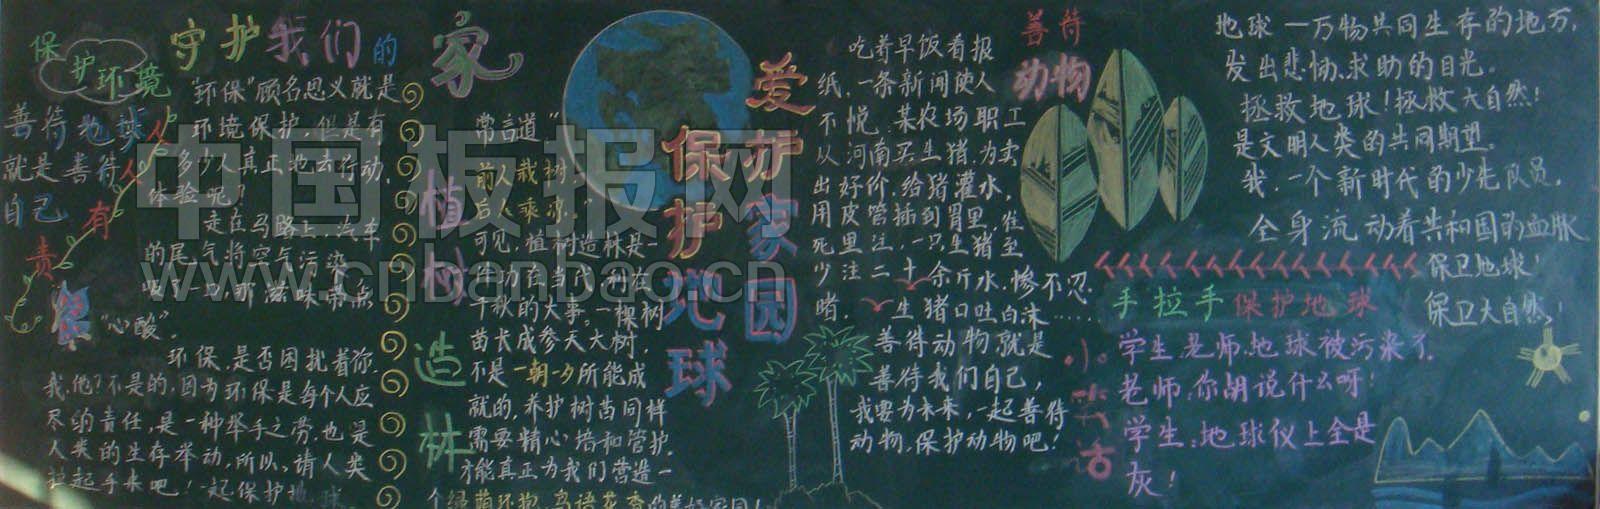 保护环境
守护我们的家
善待地球
就是善待
自己
人人有责
"环保"顾名思义就是
环境保护,但是有
多少人真正地去行动,
体验呢?
走在马路上,汽车
的尾气将空气污染
"心酸"。
环保,是否困扰着你.
我.他?不是的,因为环保是每个人应
尽的责任,是一种举手之劳.也是
人类的生存举动,所以,请人类
拉起手来吧!一起保护地球
植树造林
常言道"
前人栽树
后人乘凉
可见,植树造林是一
件功在当代,利在
千秋的大事。一棵树
苗长成参天大树,
不是一朝一夕所能成
就的,养护树苗同样
需要精心培和管护,
才能真正为我们营造一
个绿荫环抱,鸟语花香的美好家园!
爱护家园
保护地球
善待
动物
吃着早饭看报
纸,一条新闻使人
不悦.某农场职工
从河南买生猪.为卖
出好价.给猪灌水,
用皮管插到胃里,往
死里注,一只生猪至
少注二十余斤水.惨不忍
睹.生猪口吐白沫……
善待动物.就是
善待我们自己,
我要为未来,一起善待
动物,保护动物吧!
地球一万物共同生存的地方,
发出悲恸.求助的目光。
拯救地球!拯救大自然!
是文明人类的共同期望。
我.一个新时代的少先队员,
全身流动着共和国的血脉
保卫地球!
保卫大自然!
手拉手保护地球
小笑话
学生:老师,地球被污染了.
老师:你胡说什么呀!
学生:地球仪上全是
灰!
中国板报网
www.cnbanbao.cn